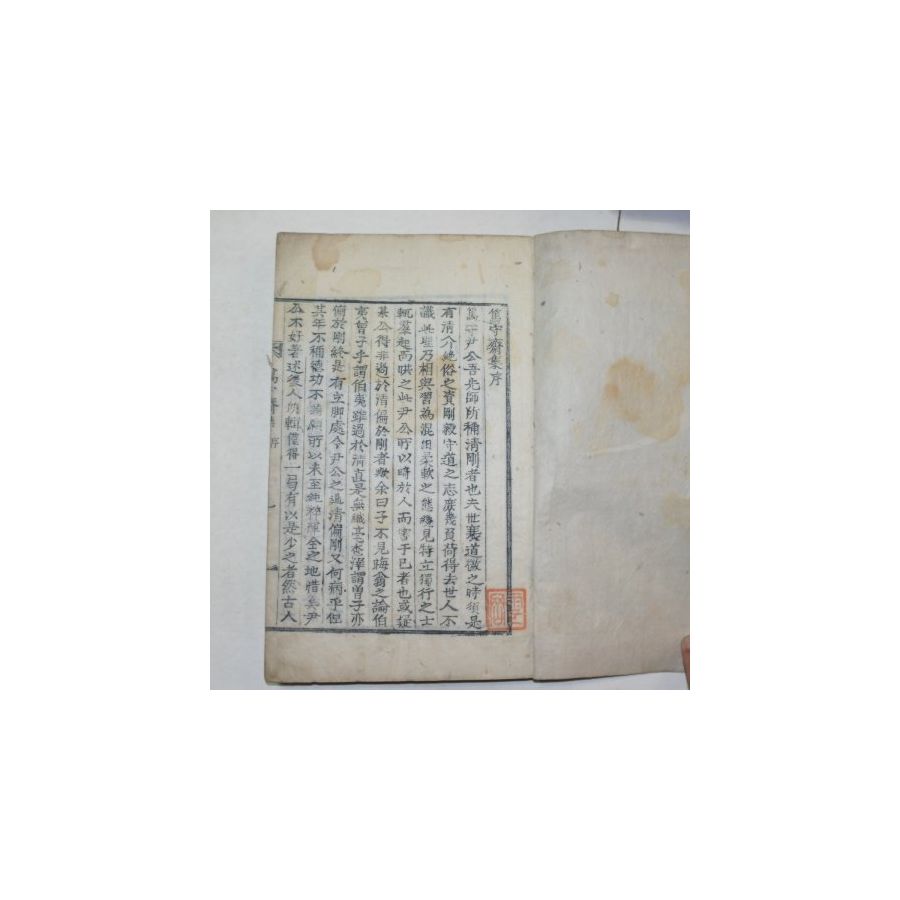 篤守齋集序
篤守尹公吾先師所稱淸剛者也夫世衰道微之時須是
有淸介絶俗之資剛毅守道之志庶幾負荷得去世人不
識此理乃相與習爲混田柔軟之態纔見特立獨行之士
輒羣起而哄之此尹公所以畸於人而害于已者也或疑
公得非過於淸偏於剛者歟余曰子不見晦翁之論伯
夷曾子乎謂伯夷雖過於淸直是無纖毫査滓謂曾子亦
偏於剛終是有立脚處今尹公之過淸偏剛又何病乎但
其年不稱德功不以未至純粹全之地惜矣尹
公不好著述後人所輯僅得一局有以是少之者然古人
序